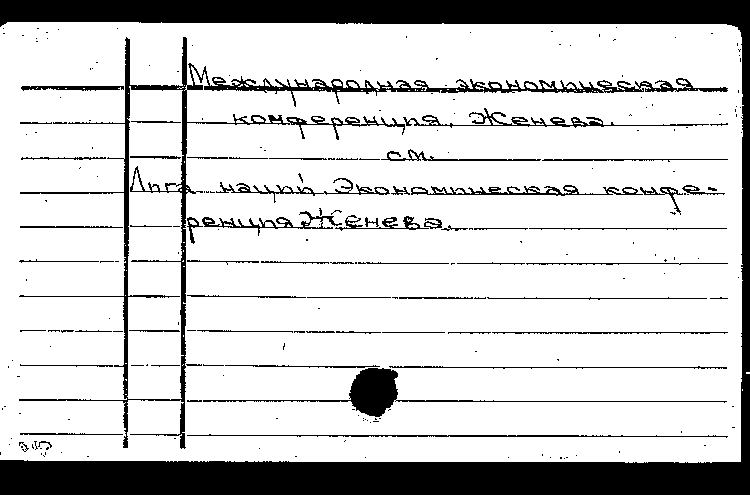 Международная экономическая
конференция, Женева.
см.
Лига наций. Экономическая конфе-
ренция Женева.